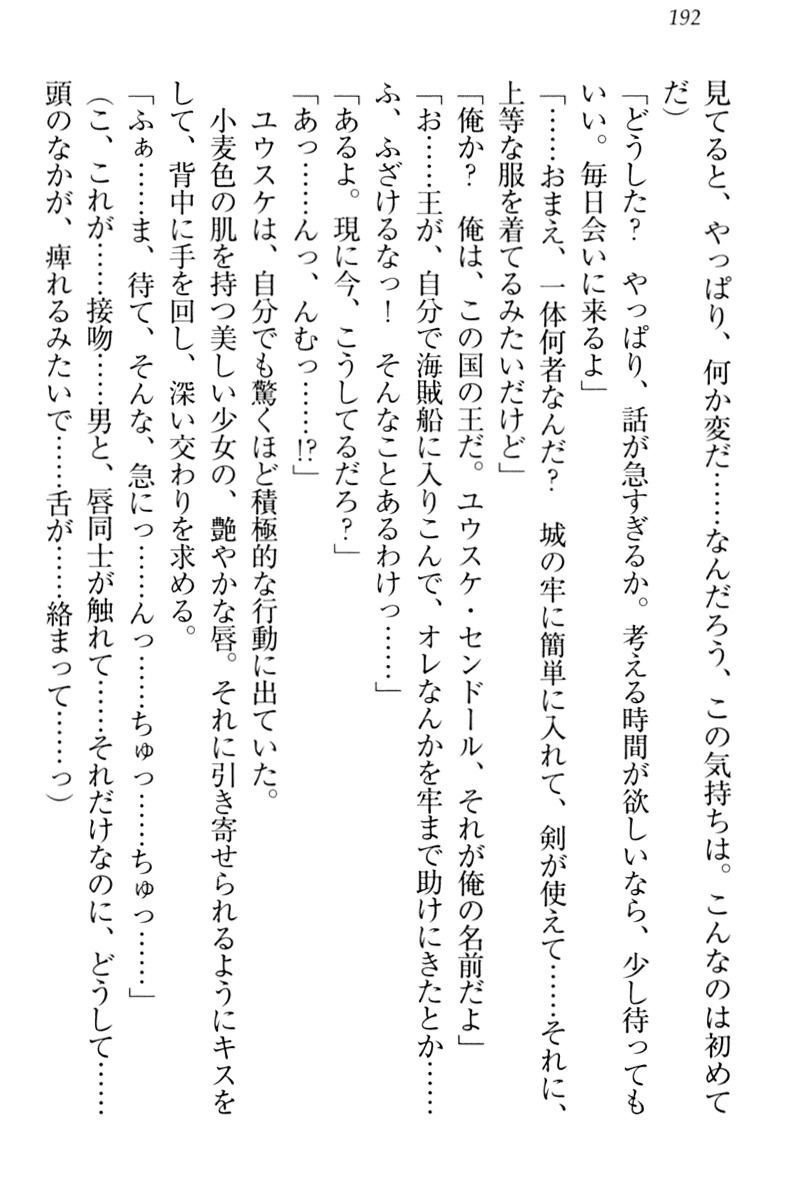 192
見てると、やっぱり、何か変だ……なんだろう、この気持ちは。こんなのは初めて
だ）
「どうした？　やっぱり、話が急すぎるか。考える時間が欲しいなら、少し待っても
いい。毎日会いに来るよ」
「……おまえ、一体何者なんだ？　城の牢に簡単に入れて、剣が使えて……それに、
上等な服を着てるみたいだけど」
「俺か？　俺は、この国の王だ。ユウスケ・センドール、それが俺の名前だよ」
「お……王が、自分で海賊船に入りこんで、オレなんかを牢まで助けにきたとか……
ふ、ふざけるなっ！　そんなことあるわけっ……」
「あるよ。現に今、こうしてるだろ？」
「あっ……んっ、んむっ……!?」
　ユウスケは、自分でも驚くほど積極的な行動に出ていた。
　小麦色の肌を持つ美しい少女の、艶やかな唇。それに引き寄せられるようにキスを
して、背中に手を回し、深い交わりを求める。
「ふぁ……ま、待て、そんな、急にっ……んっ……ちゅっ……ちゅっ……」
（こ、これが……接吻……男と、唇同士が触れて……それだけなのに、どうして……
頭のなかが、痺れるみたいで……舌が……絡まって……っ）